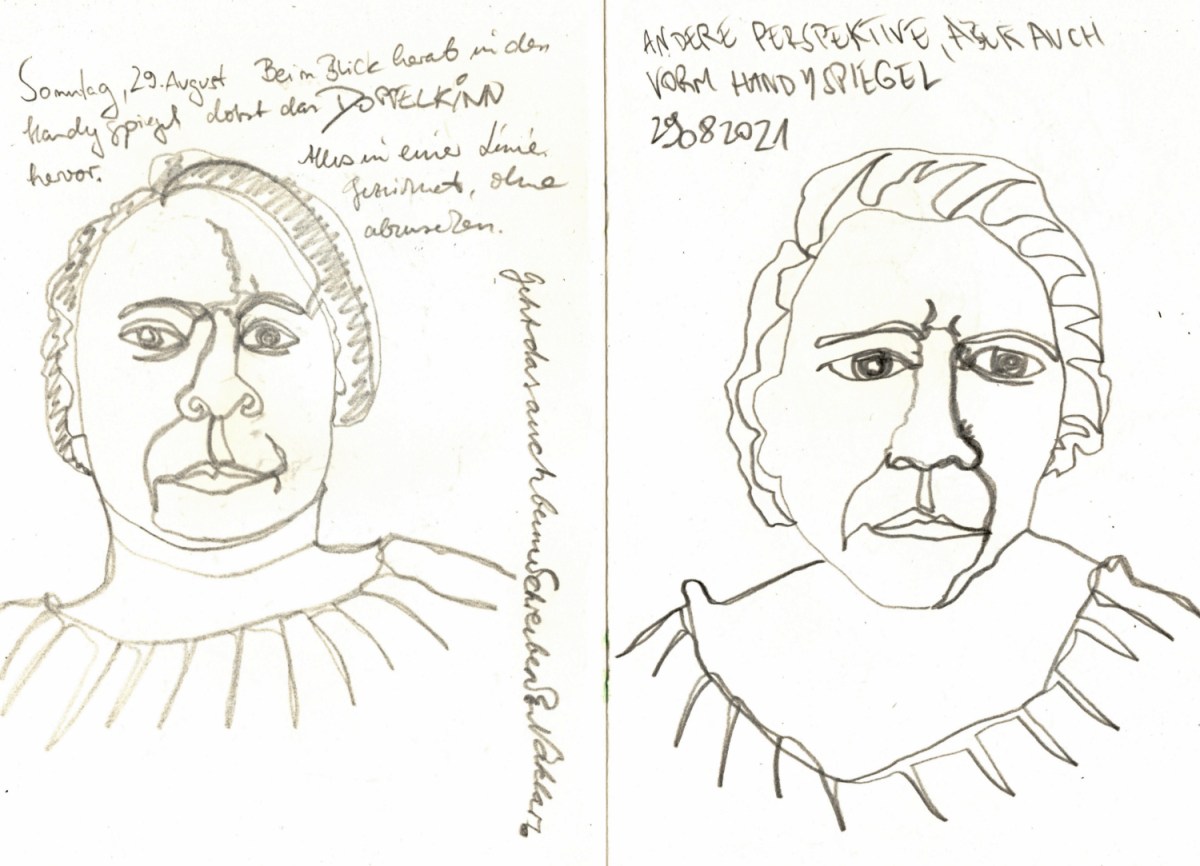 Sonntag, 29. August Beim Blick herab in den
Handyspiegel das DOPPELKINN
hervor.
Alles in einer Linie
gezeichnet, ohne
abzusetzen.
GehtdasauchbeimSchreiben Naklar
ANDERE PERSPEKTIVE, ABER AUCH
VORM HANDYSPIEGEL
29082021